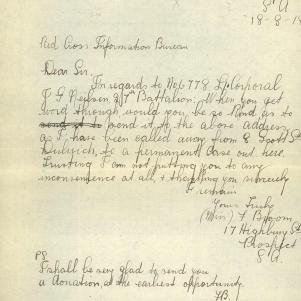 S A
18-8-1
Red Cross Information Bureau
Dear Sir.
In regards to No 6778 L/Corporal
J G Neilsen 27th Battalion. When you get
word through would you be so kind as to
send it to send it to the above address
as I have been called away from 8 Scott St
Dulwich, to a permanent case out here.
Trusting I am not putting you to any
inconvenience at all, & thanking you sincerely
I remain
Yours Truly
(Miss) F Bloom
17 Highbury St
Prospect
S A.
PS
I shall be very glad to send you
a donation, at the earliest opportunity.
FB.